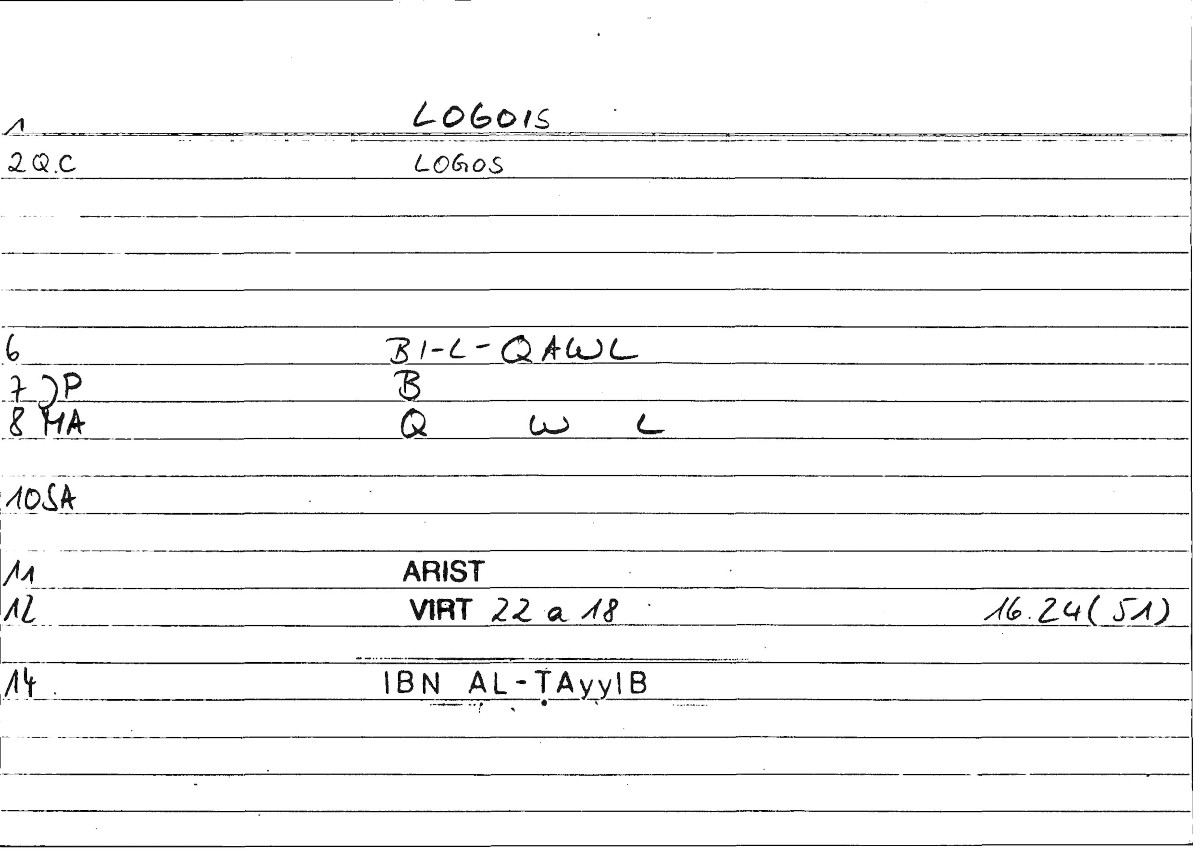 1 LOGOIS
2 Q.C LOGOS
6 BI-L-QAWL
7 JP B
8 MA Q W L
10 SA
11 ARIST
12 VIRT 22 a 18 16.24(51)
14 IBN AL-ṬAyyIB